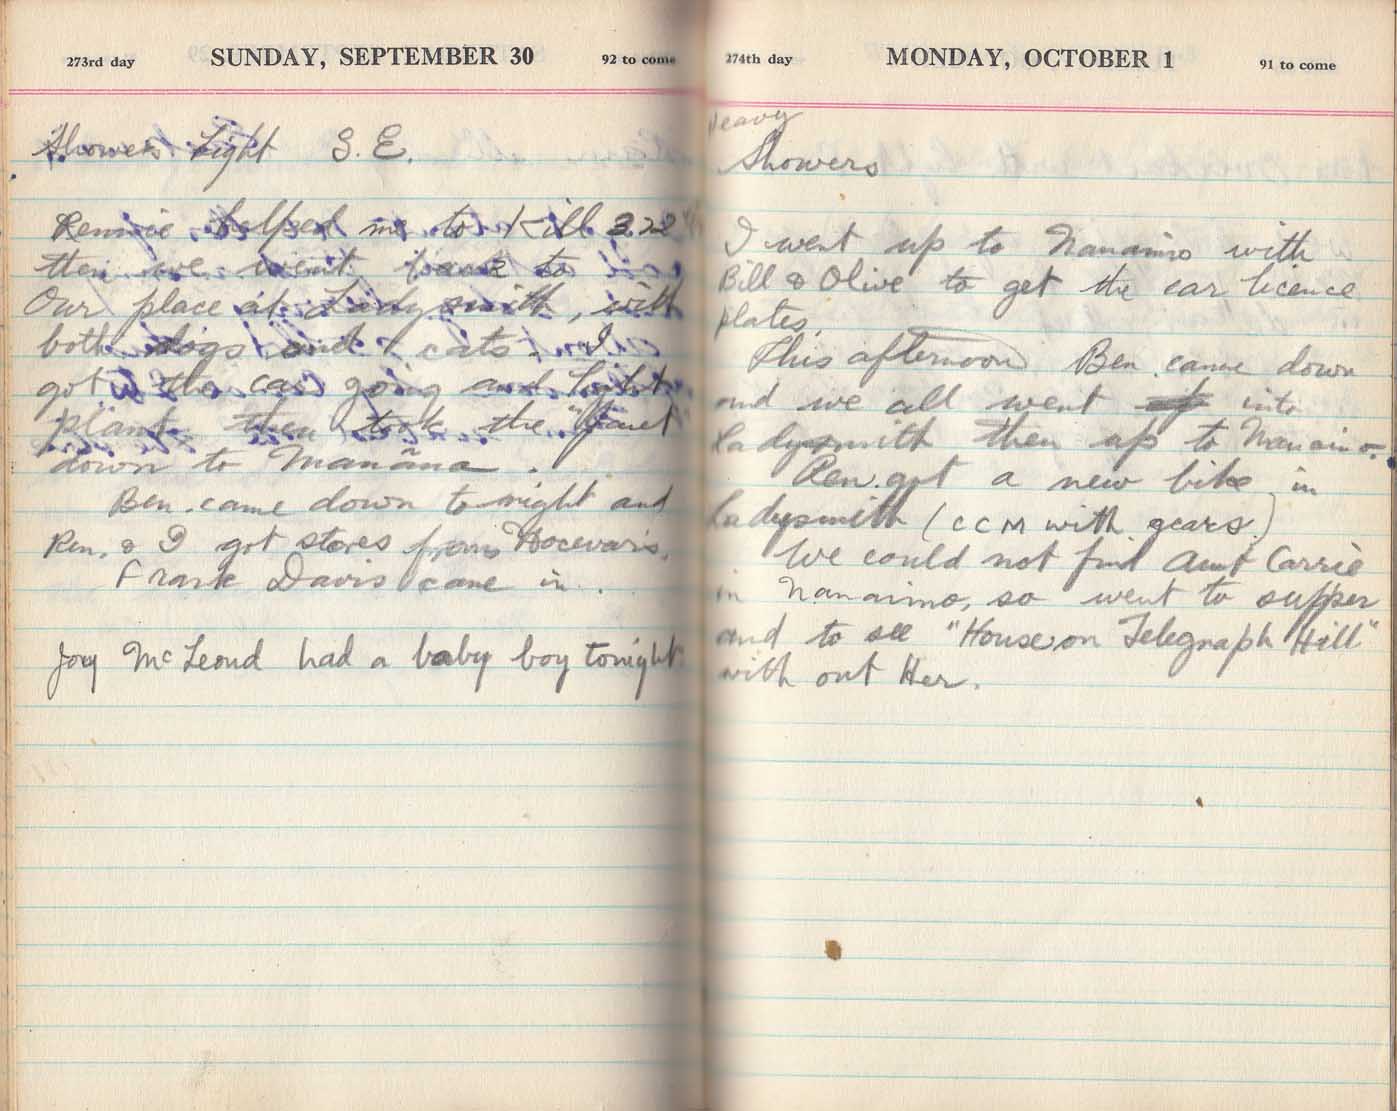 273rd day SUNDAY, SEPTEMBER 30 92 to come
Showers Light S.E.
Rennie helped me to Kill 322
then we went back to
Our place at Ladysmith, with
both dogs and cats. I
got the car going and light
plant then took the "Yanet"
down to Mañana.
Ben. came down to night and
Ren. & I got stores from Hocevars.
Frank Davis came in.
Joy McLeod had a baby boy tonight
274th day MONDAY, OCTOBER 1 91 to come
Heavy
Showers
I went up to Nanaimo with
Bill & Olive to get the car licence
plates.
This afternoon Ben. came down
and we all went into
Ladysmith then up to Nanaimo.
Ren. got a new bike in
Ladysmith (CCM with gears)
We could not find Aunt Carrie
in Nanaimo, so went to supper
and to see "House on Telegraph Hill"
with out Her.